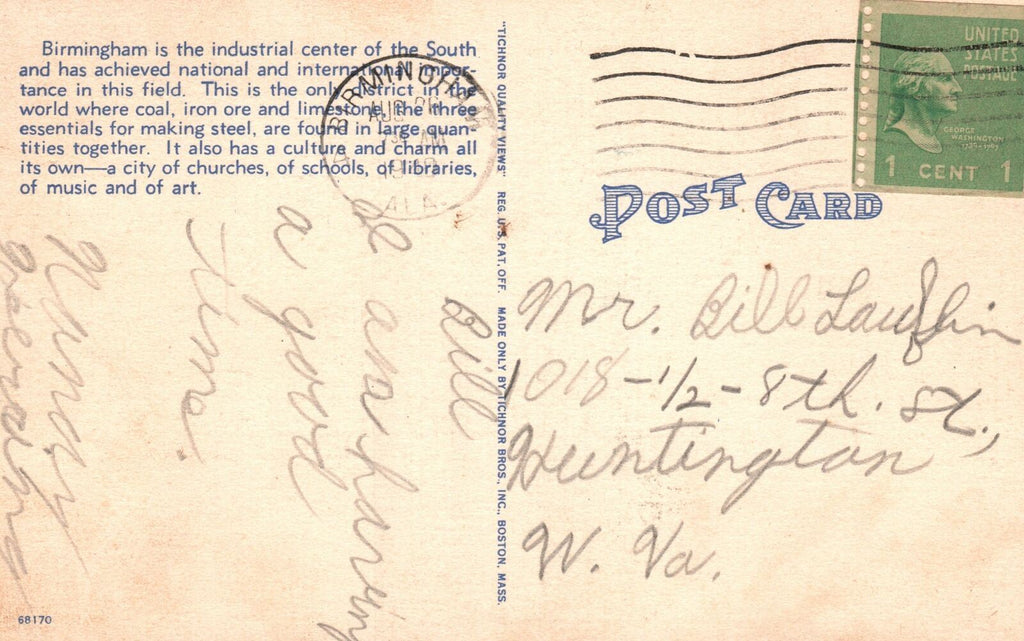 Birmingham is the industrial center of the South
and has achieved national and international impor-
tance in this field. This is the only district in the
world where coal, iron ore and limestone, the three
essentials for making steel, are found in large quan-
tities together. It also has a culture and charm all
its own—a city of churches, of schools, of libraries,
of music and of art.
BIRMINGHAM
AUG 26
AM
ALA.
"TICHNOR QUALITY VIEWS" REG. U.S. PAT. OFF. MADE ONLY BY TICHNOR BROS., INC., BOSTON, MASS.
UNITED
STATES
POSTAGE
GEORGE
WASHINGTON
1 CENT 1
POST CARD
Mr. Bill Lauflin
1018-1/2-8th. St.,
Huntington
W. Va.
Bill
a good
time.
68170